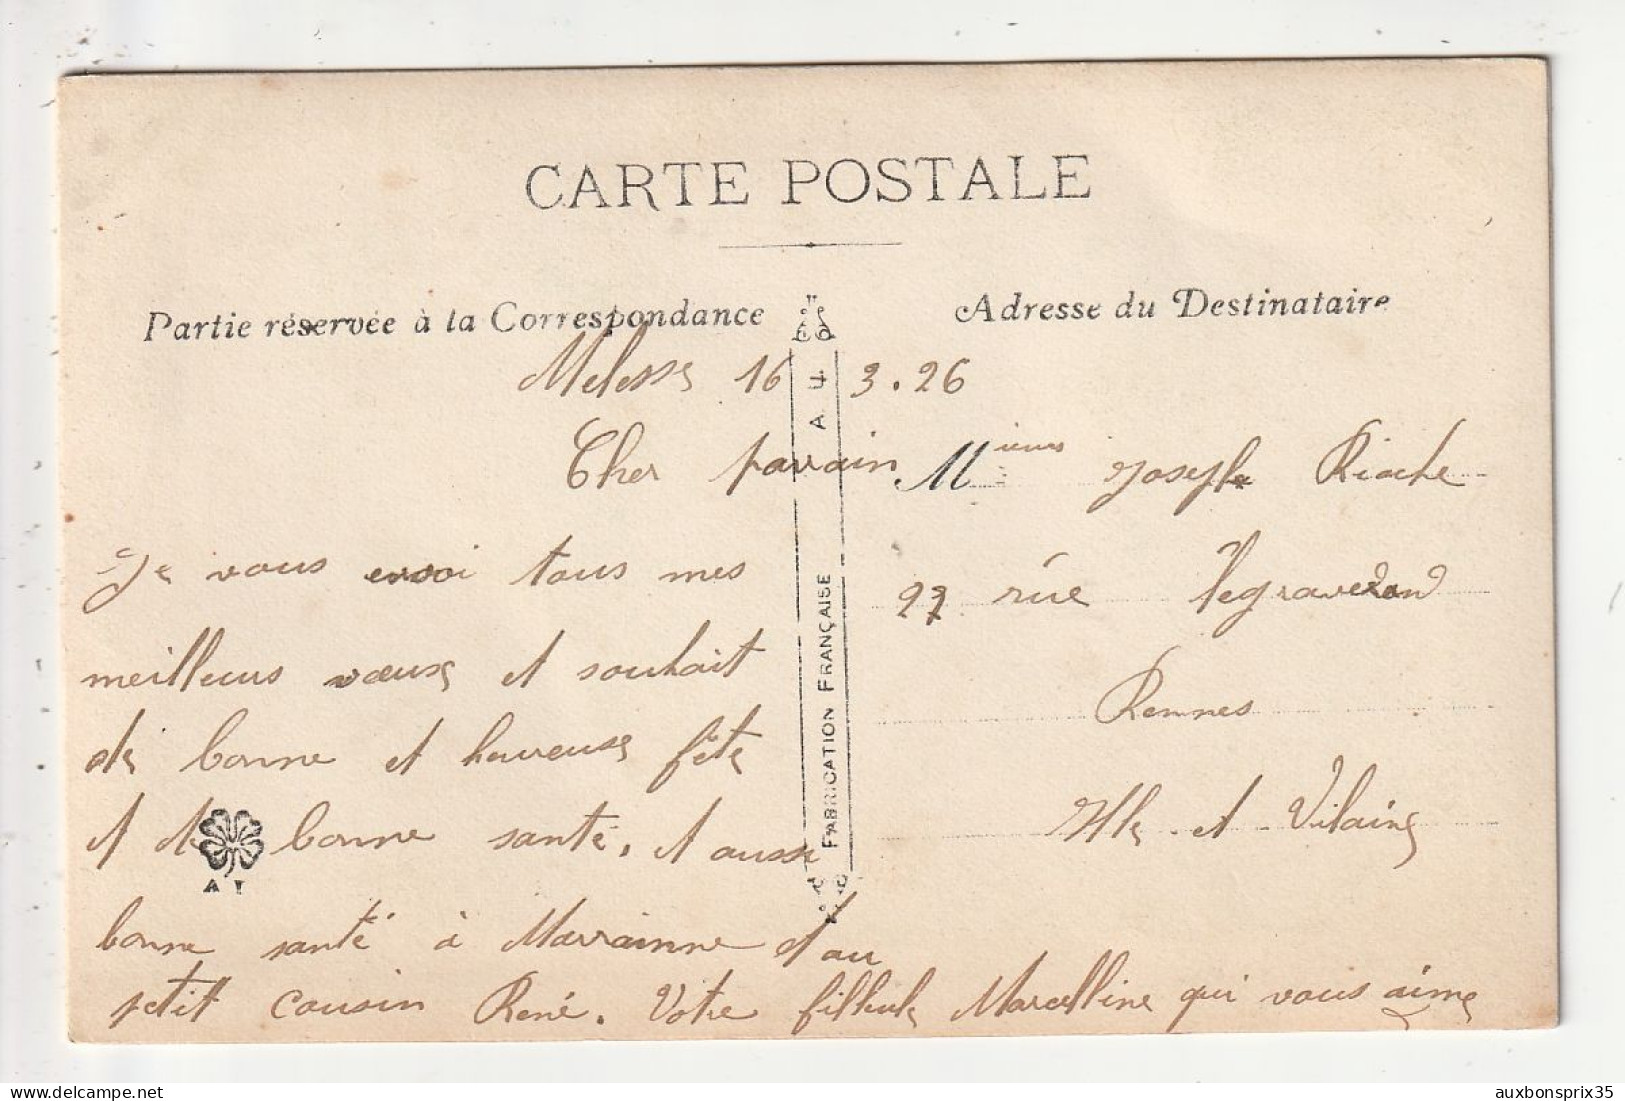 CARTE POSTALE
Partie réservée à la Correspondance
Adresse du Destinataire
Melesse 16 3.26
Cher parrain
Je vous envoi tous mes
meilleurs vœuxs et souhait
de bonne et heureuse fête
et de bonne santé, et aussi
bonne santé à Marrainne et au
petit cousin René. Votre filleule Marcelline qui vous aime
Mieurs Joseph Riache
27 rue legraverand
Rennes
Ille et Vilaine
A.F.
FABRICATION FRANÇAISE
auxbonsprix35